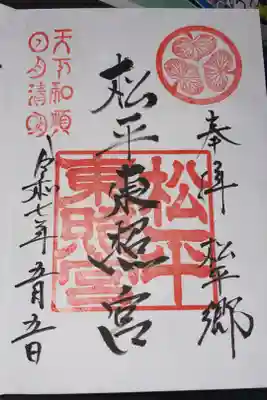 奉拝 松平郷
松平東照宮
松平
東照宮
天下和順
日月清明
令和七年五月五日